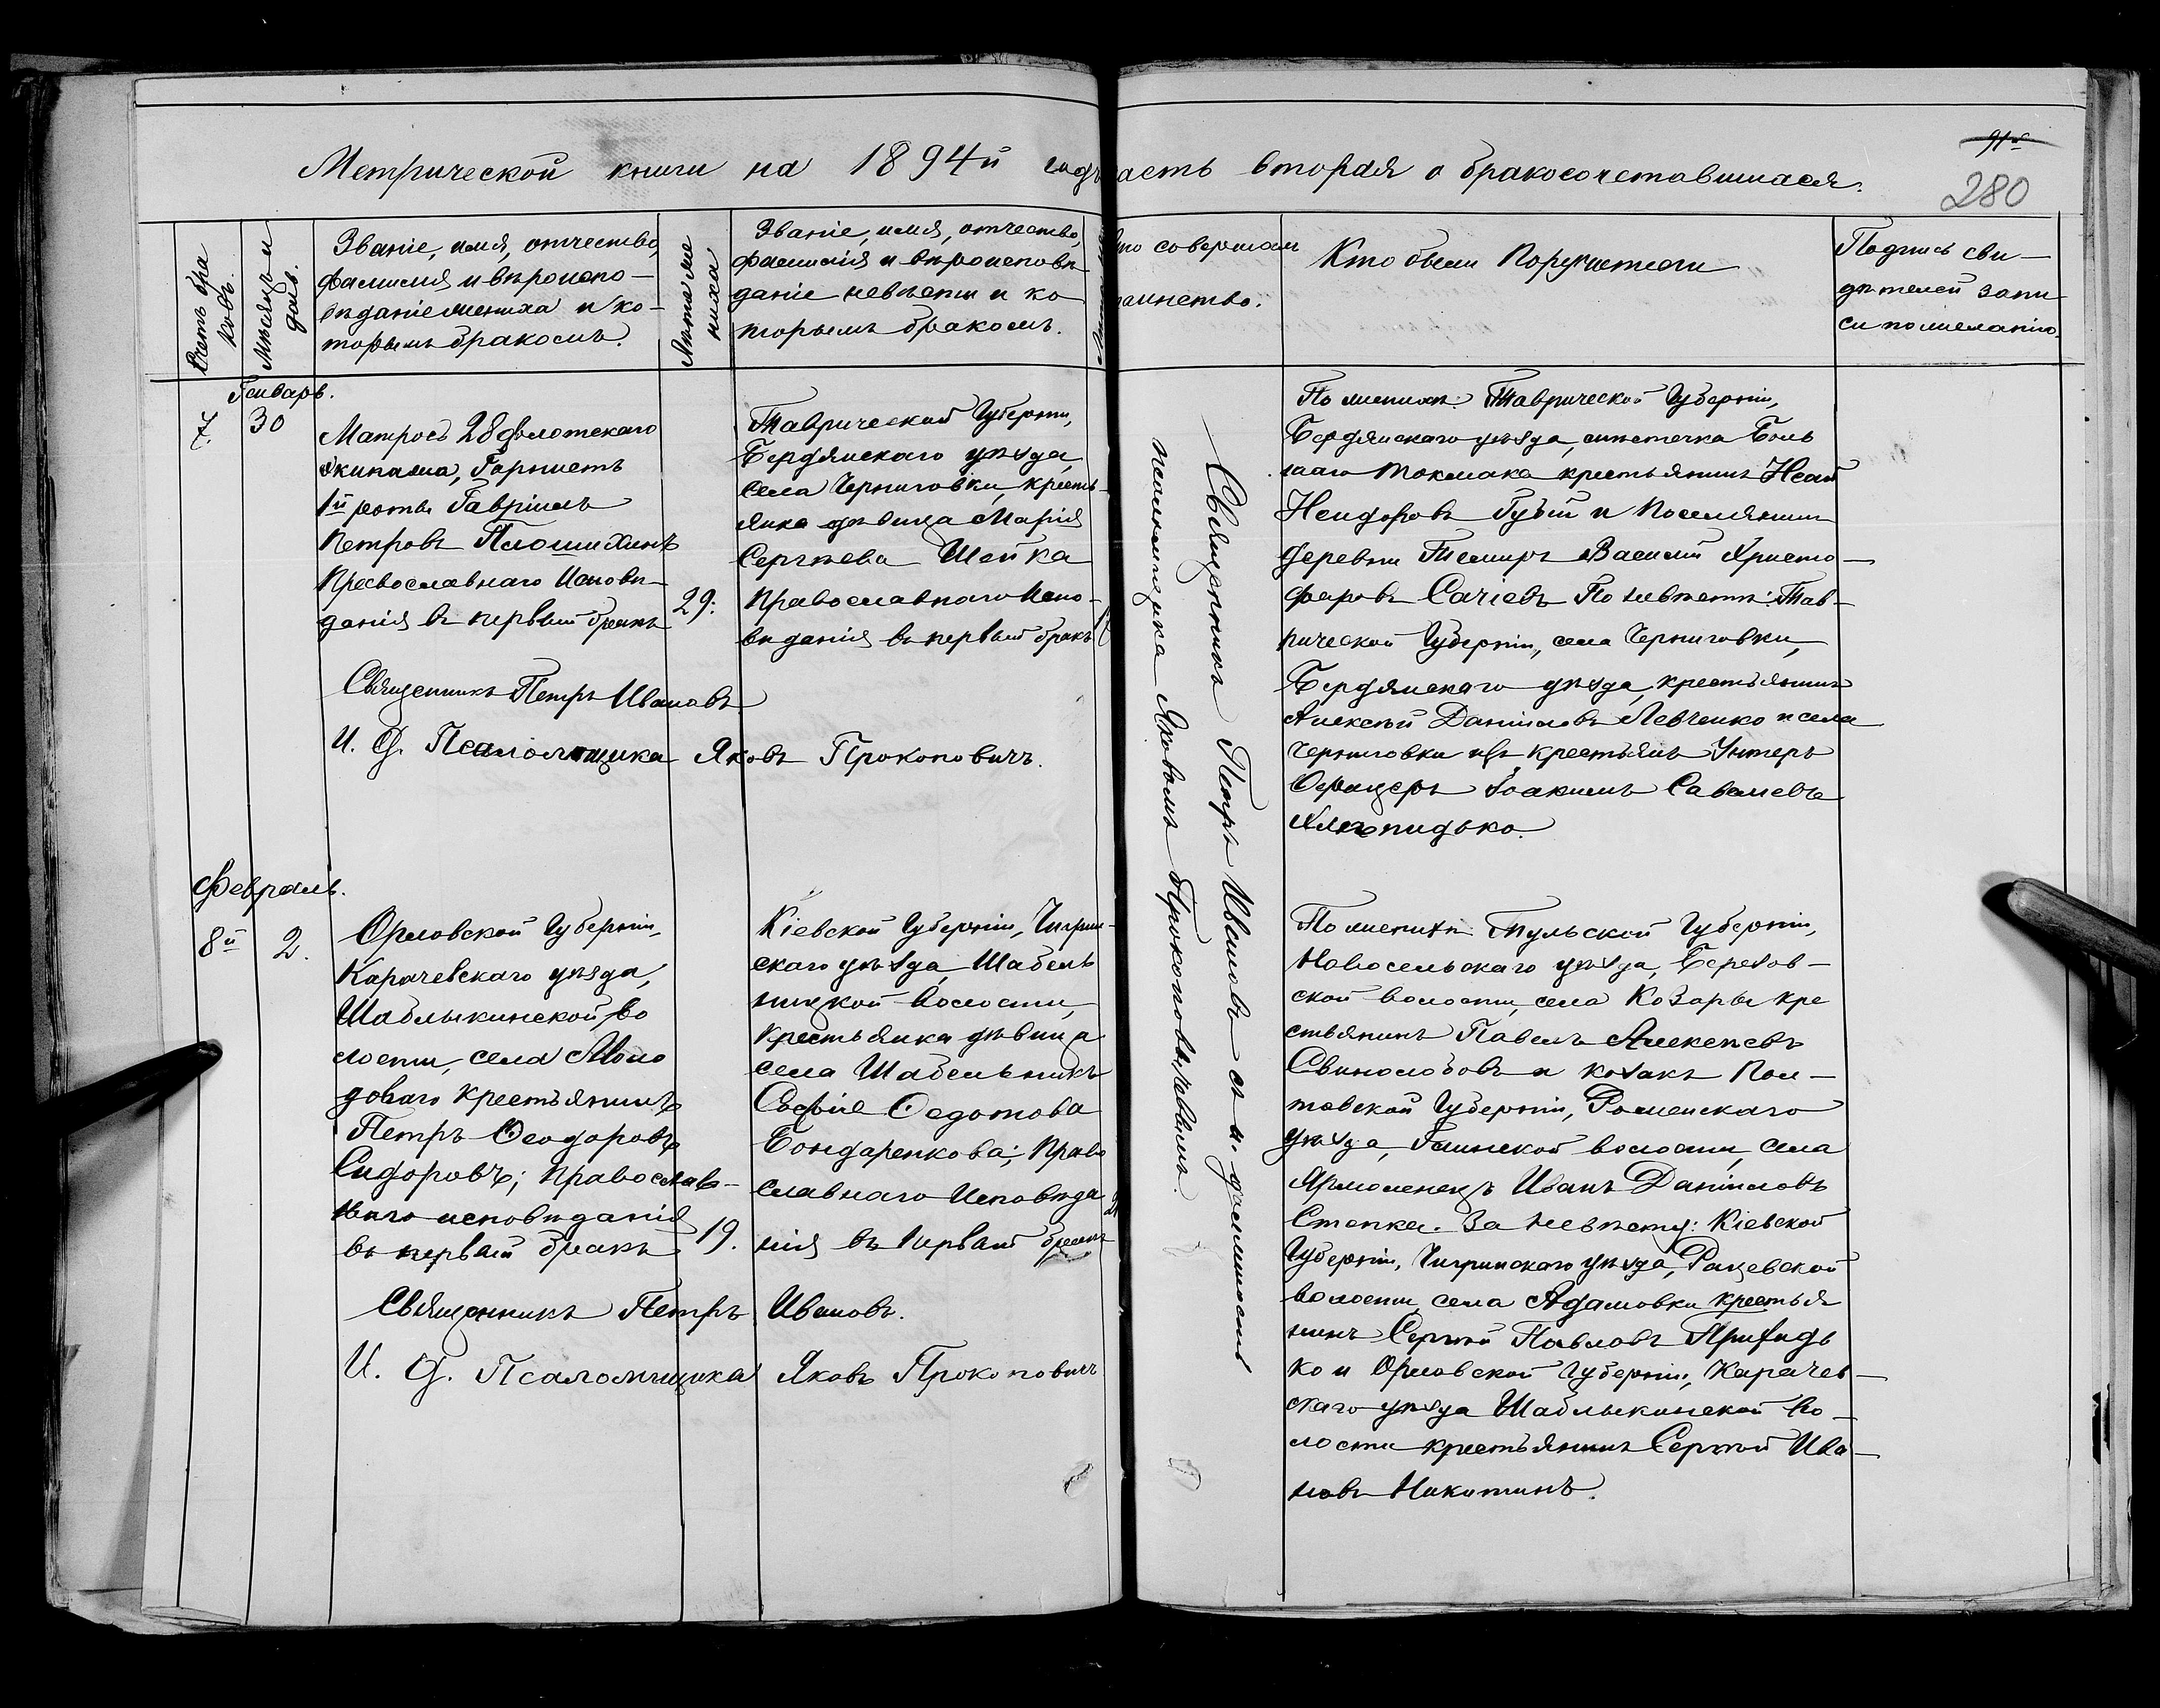 Метрической книги на 1894й годъ
часть вторая о бракосочетавшихся.
280
Счетъ бра
ковъ.
Мѣсяцъ и
день.
Званіе, имя, отчество,
фамилія и вѣроиспо-
вѣданіе жениха и ко-
торымъ бракомъ.
Лѣта же
ниха
Званіе, имя, отчество,
фамилія и вѣроисповѣ
даніе невѣсты и ко
торымъ бракомъ.
Кто совершалъ
таинство.
Кто были Поручители
Подпись сви-
дѣтелей запи
си по желанію.
Генварь.
7.
30
Матросъ 28 флотскаго
экипажа, Горнистъ
1й роты Гавріилъ
Петровъ Плошихинъ
Православнаго Исповѣ-
данія въ первый бракъ
29.
Таврической Губерніи,
Бердянскаго уѣзда,
села Черниговки, кресть-
янка дѣвица Марія
Сергѣева Шейка
Православнаго Испо-
вѣданія въ первый бракъ
Священникъ Петръ Ивановъ.
И. д. Псаломщика Яковъ Прокоповичъ.
Священникъ Петръ Ивановъ съ и. должность
псаломщика Яковомъ Прокоповичемъ.
По женихѣ: Таврической Губерніи,
Бердянскаго уѣзда, мѣстечка Боль
шаго Токмака крестьянинъ
Губій и Поселянинъ
деревни Василій Христо-
форовъ Сачіевъ По невѣстѣ: Тав-
рической Губерніи, села Черниговки,
Бердянскаго уѣзда, крестьянинъ
Алексѣй Даніиловъ Левченко и села
Черниговки изъ крестьянъ Унтеръ
Офицеръ Іоакимъ Савельевъ
Февраль.
8й
2.
Орловской Губерніи,
Карачевскаго уѣзда,
Шаблыкинской во
лости, села Моло
доваго крестьянинъ
Петръ Ѳеодоровъ
Сидоровъ; православ-
наго исповѣданія
въ первый бракъ
19.
Кіевской Губерніи, Чигрин-
скаго уѣзда, Шабель
ницкой волости,
крестьянка дѣвица
села Шабельникъ
Софія Ѳедотова
Бондаренкова; Право
славнаго Исповѣда
нія въ первый бракъ
Священникъ Петръ Ивановъ.
И. д. Псаломщика Яковъ Прокоповичъ
По женихѣ Тульской Губерніи,
Новосельскаго уѣзда, Березов-
ской волости, села Козары кре
стьянинъ Павелъ Алексѣевъ
Свинолобовъ и козакъ Пол-
тавской Губерніи, Роменскаго
уѣзда, Глинской волости, села
Ярмоленецъ Иванъ Даніиловъ
Степка. За невѣсту: Кіевской
Губерніи, Чигринскаго уѣзда, Рацевской
волости, села Адамовки крестья
нинъ Сергѣй Павловъ Призидь
ко и Орловской Губерніи, Карачев-
скаго уѣзда Шаблыкинской во-
лости крестьянинъ Сергѣй Ива-
новъ Никитинъ.